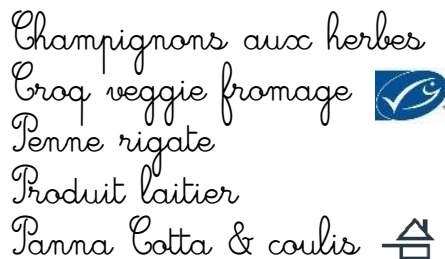 Champignons aux herbes
Croq veggie fromage
Penne rigate
Produit laitier
Panna Cotta & coulis